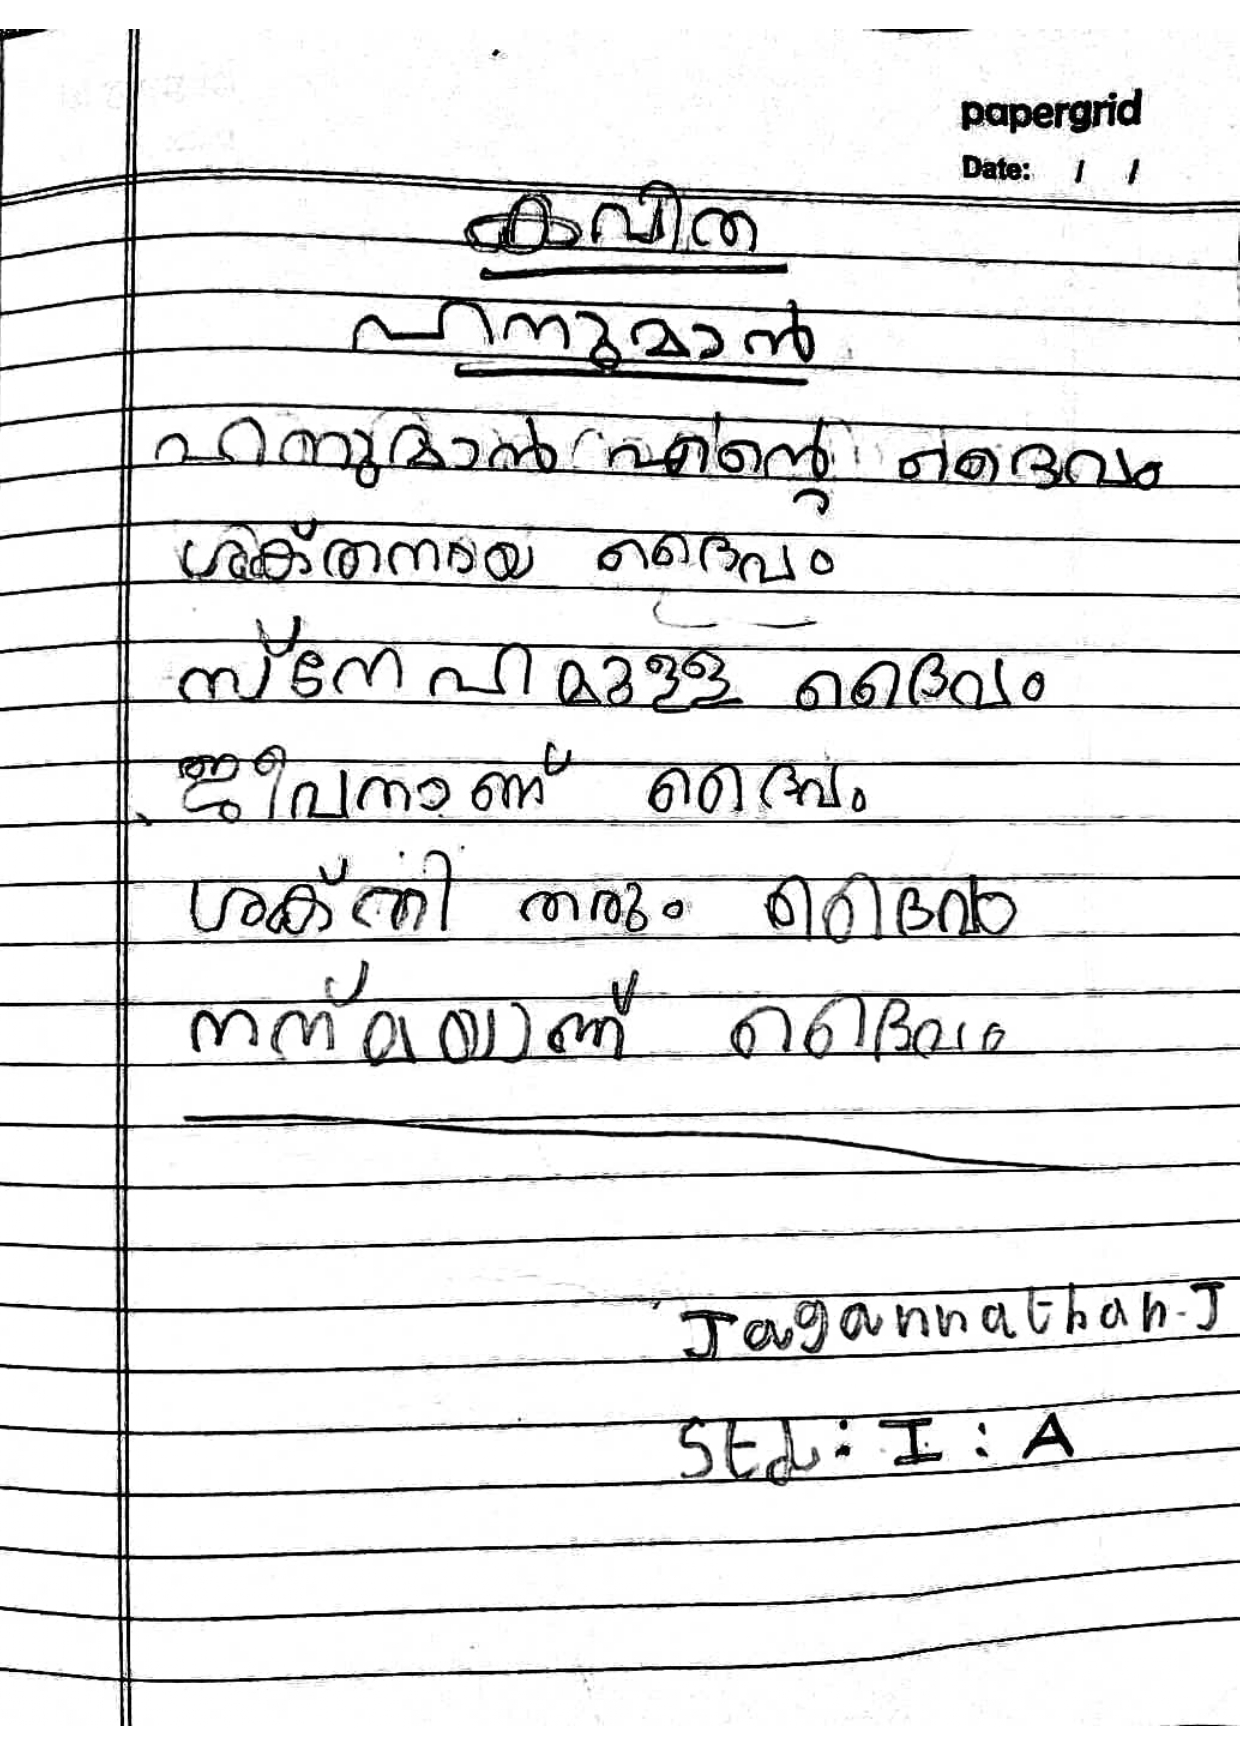 papergrid
Date: / /
കവിത
ഹനുമാൻ
ഹനുമാൻ എന്റെ ദൈവം
ശക്തനായ ദൈവം
സ്നേഹമുള്ള ദൈവം
ജീവനാണ് ദൈവം
ശക്തി തരും ദൈവം
നന്മയാണ് ദൈവം
Jagannathan.J
Std: I : A